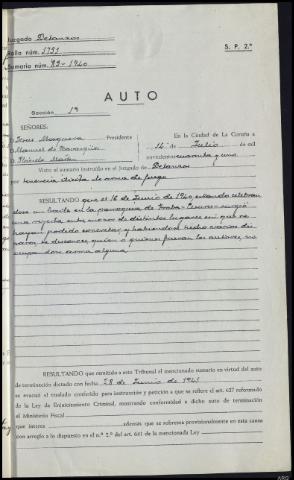 Juzgado Betanzos
Rollo núm. 1751
Sumario núm. 89-1940
S. P. 2.ª
AUTO
Sección 1ª
SEÑORES:
Presidente
En la Ciudad de La Coruña a
14 de Julio de mil
Manuel de
novecientos cuarenta y uno
Visto el sumario instruído en el Juzgado de Betanzos
por tenencia ilícita de arma de fuego
RESULTANDO que el 16 de Junio de 1940, estando celebran
dose un baile en la parroquia de surgió
una reyerta entre mozos de distintos lugares sin que se
hayan podido concretar, y habiendose hecho varios dis
paros, se desconoce quien o quienes fueran los autores, no
arma alguna
RESULTANDO que remitido a este Tribunal el mencionado sumario en virtud del auto
de terminación dictado con fecha 28 de Junio de 1941
se evacuó el traslado conferido para instrucción y petición a que se refiere el art. 627 reformado
de la Ley de Enjuiciamiento Criminal, mostrando conformidad a dicho auto de terminación
el Ministerio Fiscal
que interesa además que se sobresea provisionalmente en esta causa
con arreglo a lo dispuesto en el n.º 2.º del art. 641 de la mencionada Ley